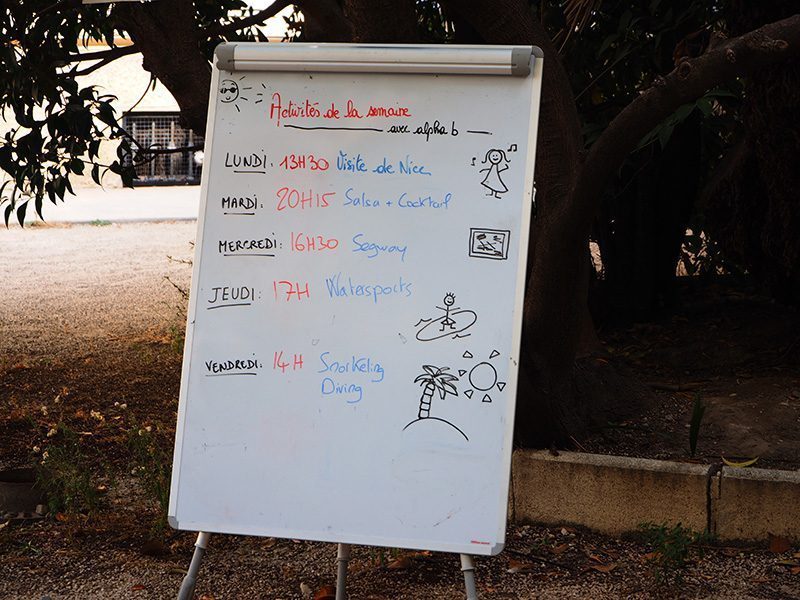 Activités de la semaine
avec alpha b
LUNDI: 13H30 Visite de Nice
MARDI: 20H15 Salsa + Cocktail
MERCREDI: 16H30 Segway
JEUDI: 17H Watersports
VENDREDI: 14H Snorkeling
Diving